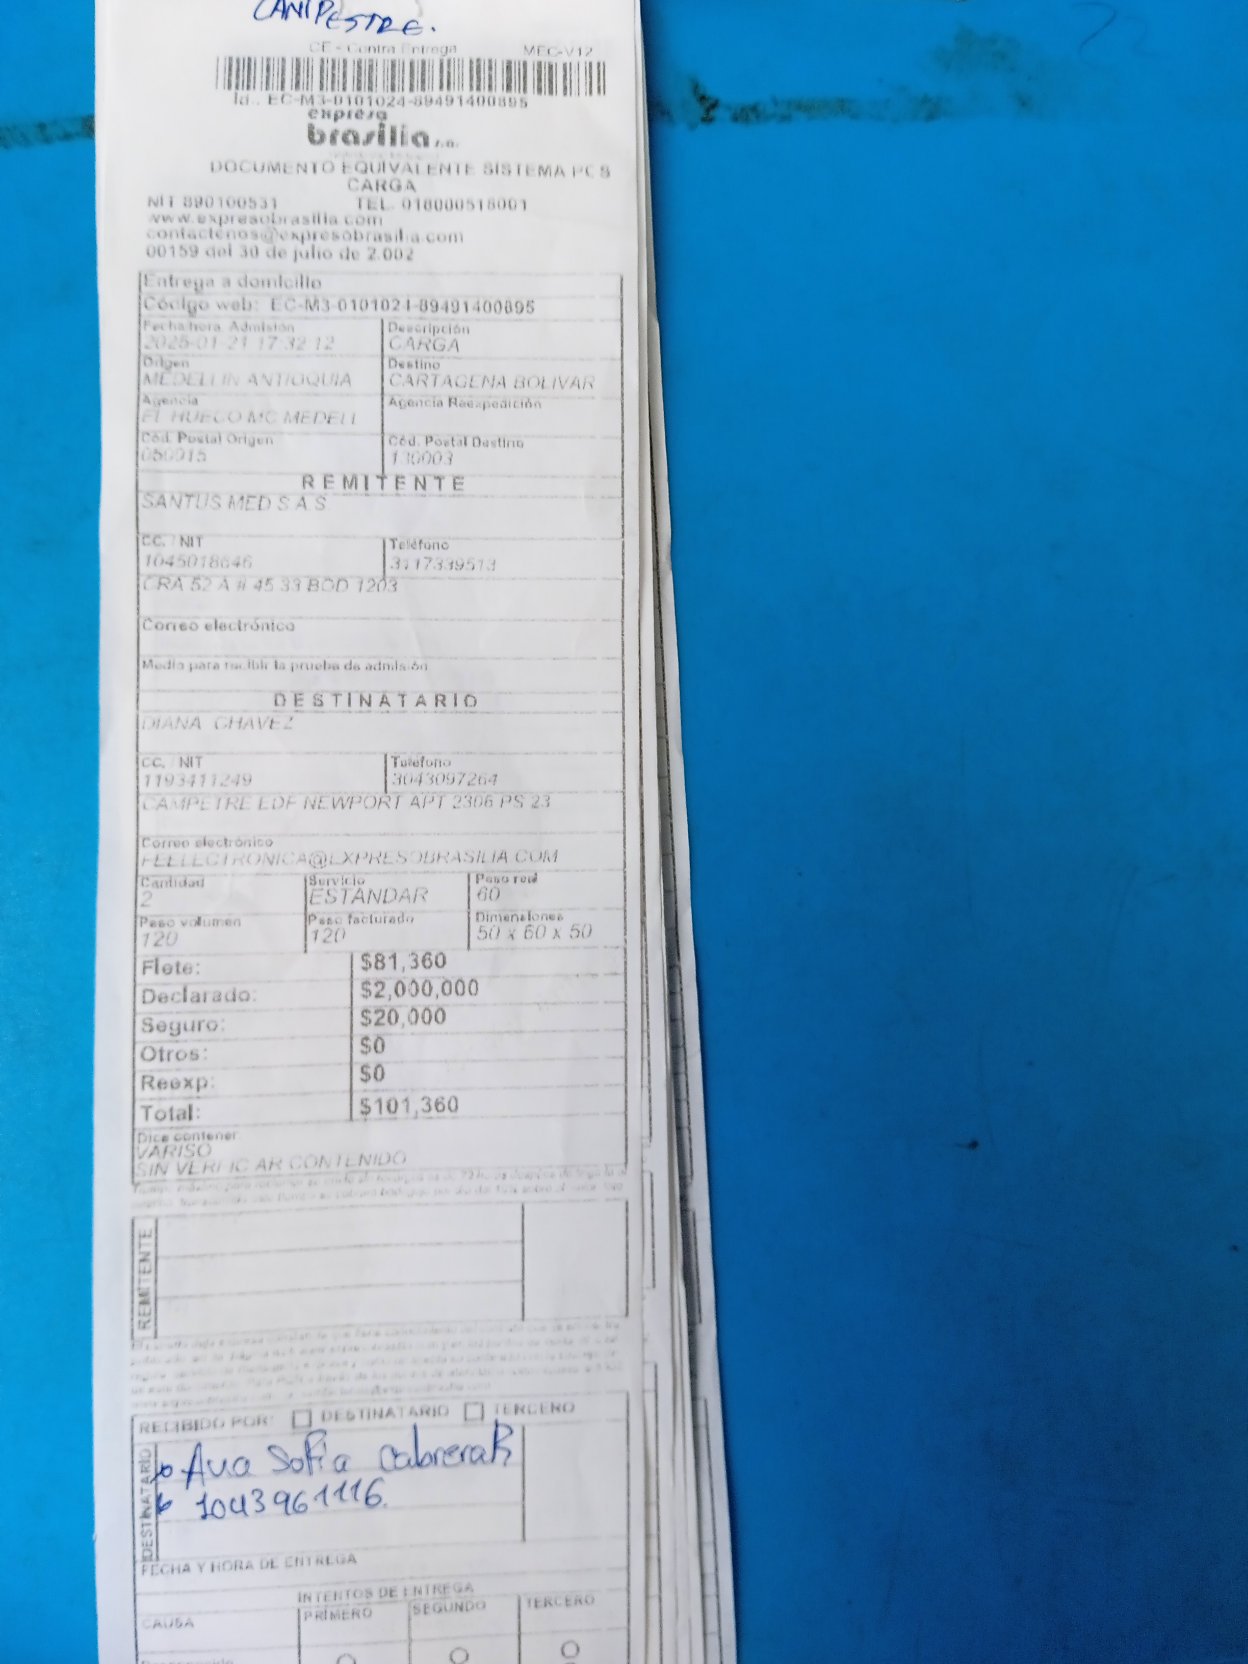 CAMPESTRE.
CE - Contra Entrega MEC-V12
Id.. EC-M3-0101024-89491400895
expreso
brasilia s.a.
DOCUMENTO EQUIVALENTE SISTEMA PCS
CARGA
NIT 890100531 TEL. 018000518001
www.expresobrasilia.com
contactenos@expresobrasilia.com
00159 del 30 de julio de 2.002
Entrega a domicilio
Código web: EC-M3-0101024-89491400895
Fecha/hora Admisión Descripción
2025-01-21 17:32:12 CARGA
Origen Destino
MEDELLIN ANTIOQUIA CARTAGENA BOLIVAR
Agencia Agencia Reexpedición
EL HUECO MC MEDELL
Cód. Postal Origen Cód. Postal Destino
050015 130003
REMITENTE
SANTUS MED S.A.S
CC. / NIT Teléfono
1045018646 3117339513
CRA 52 A # 45 33 BOD 1203
Correo electrónico
Medio para recibir la prueba de admisión
DESTINATARIO
DIANA CHAVEZ
CC. / NIT Teléfono
1193411249 3043097264
CAMPETRE EDF NEWPORT APT 2306 PS 23
Correo electrónico
FELECTRONICA@EXPRESOBRASILIA.COM
Cantidad Servicio Peso real
2 ESTANDAR 60
Peso volumen Peso facturado Dimensiones
120 120 50 x 60 x 50
Flete: $81,360
Declarado: $2,000,000
Seguro: $20,000
Otros: $0
Reexp: $0
Total: $101,360
Dice contener
VARISO
SIN VERIFICAR CONTENIDO
REMITENTE
RECIBIDO POR: DESTINATARIO TERCERO
DESTINATARIO
Ana Sofia Cabrera R
1043961116.
FECHA Y HORA DE ENTREGA
INTENTOS DE ENTREGA
CAUSA PRIMERO SEGUNDO TERCERO
Desconocido